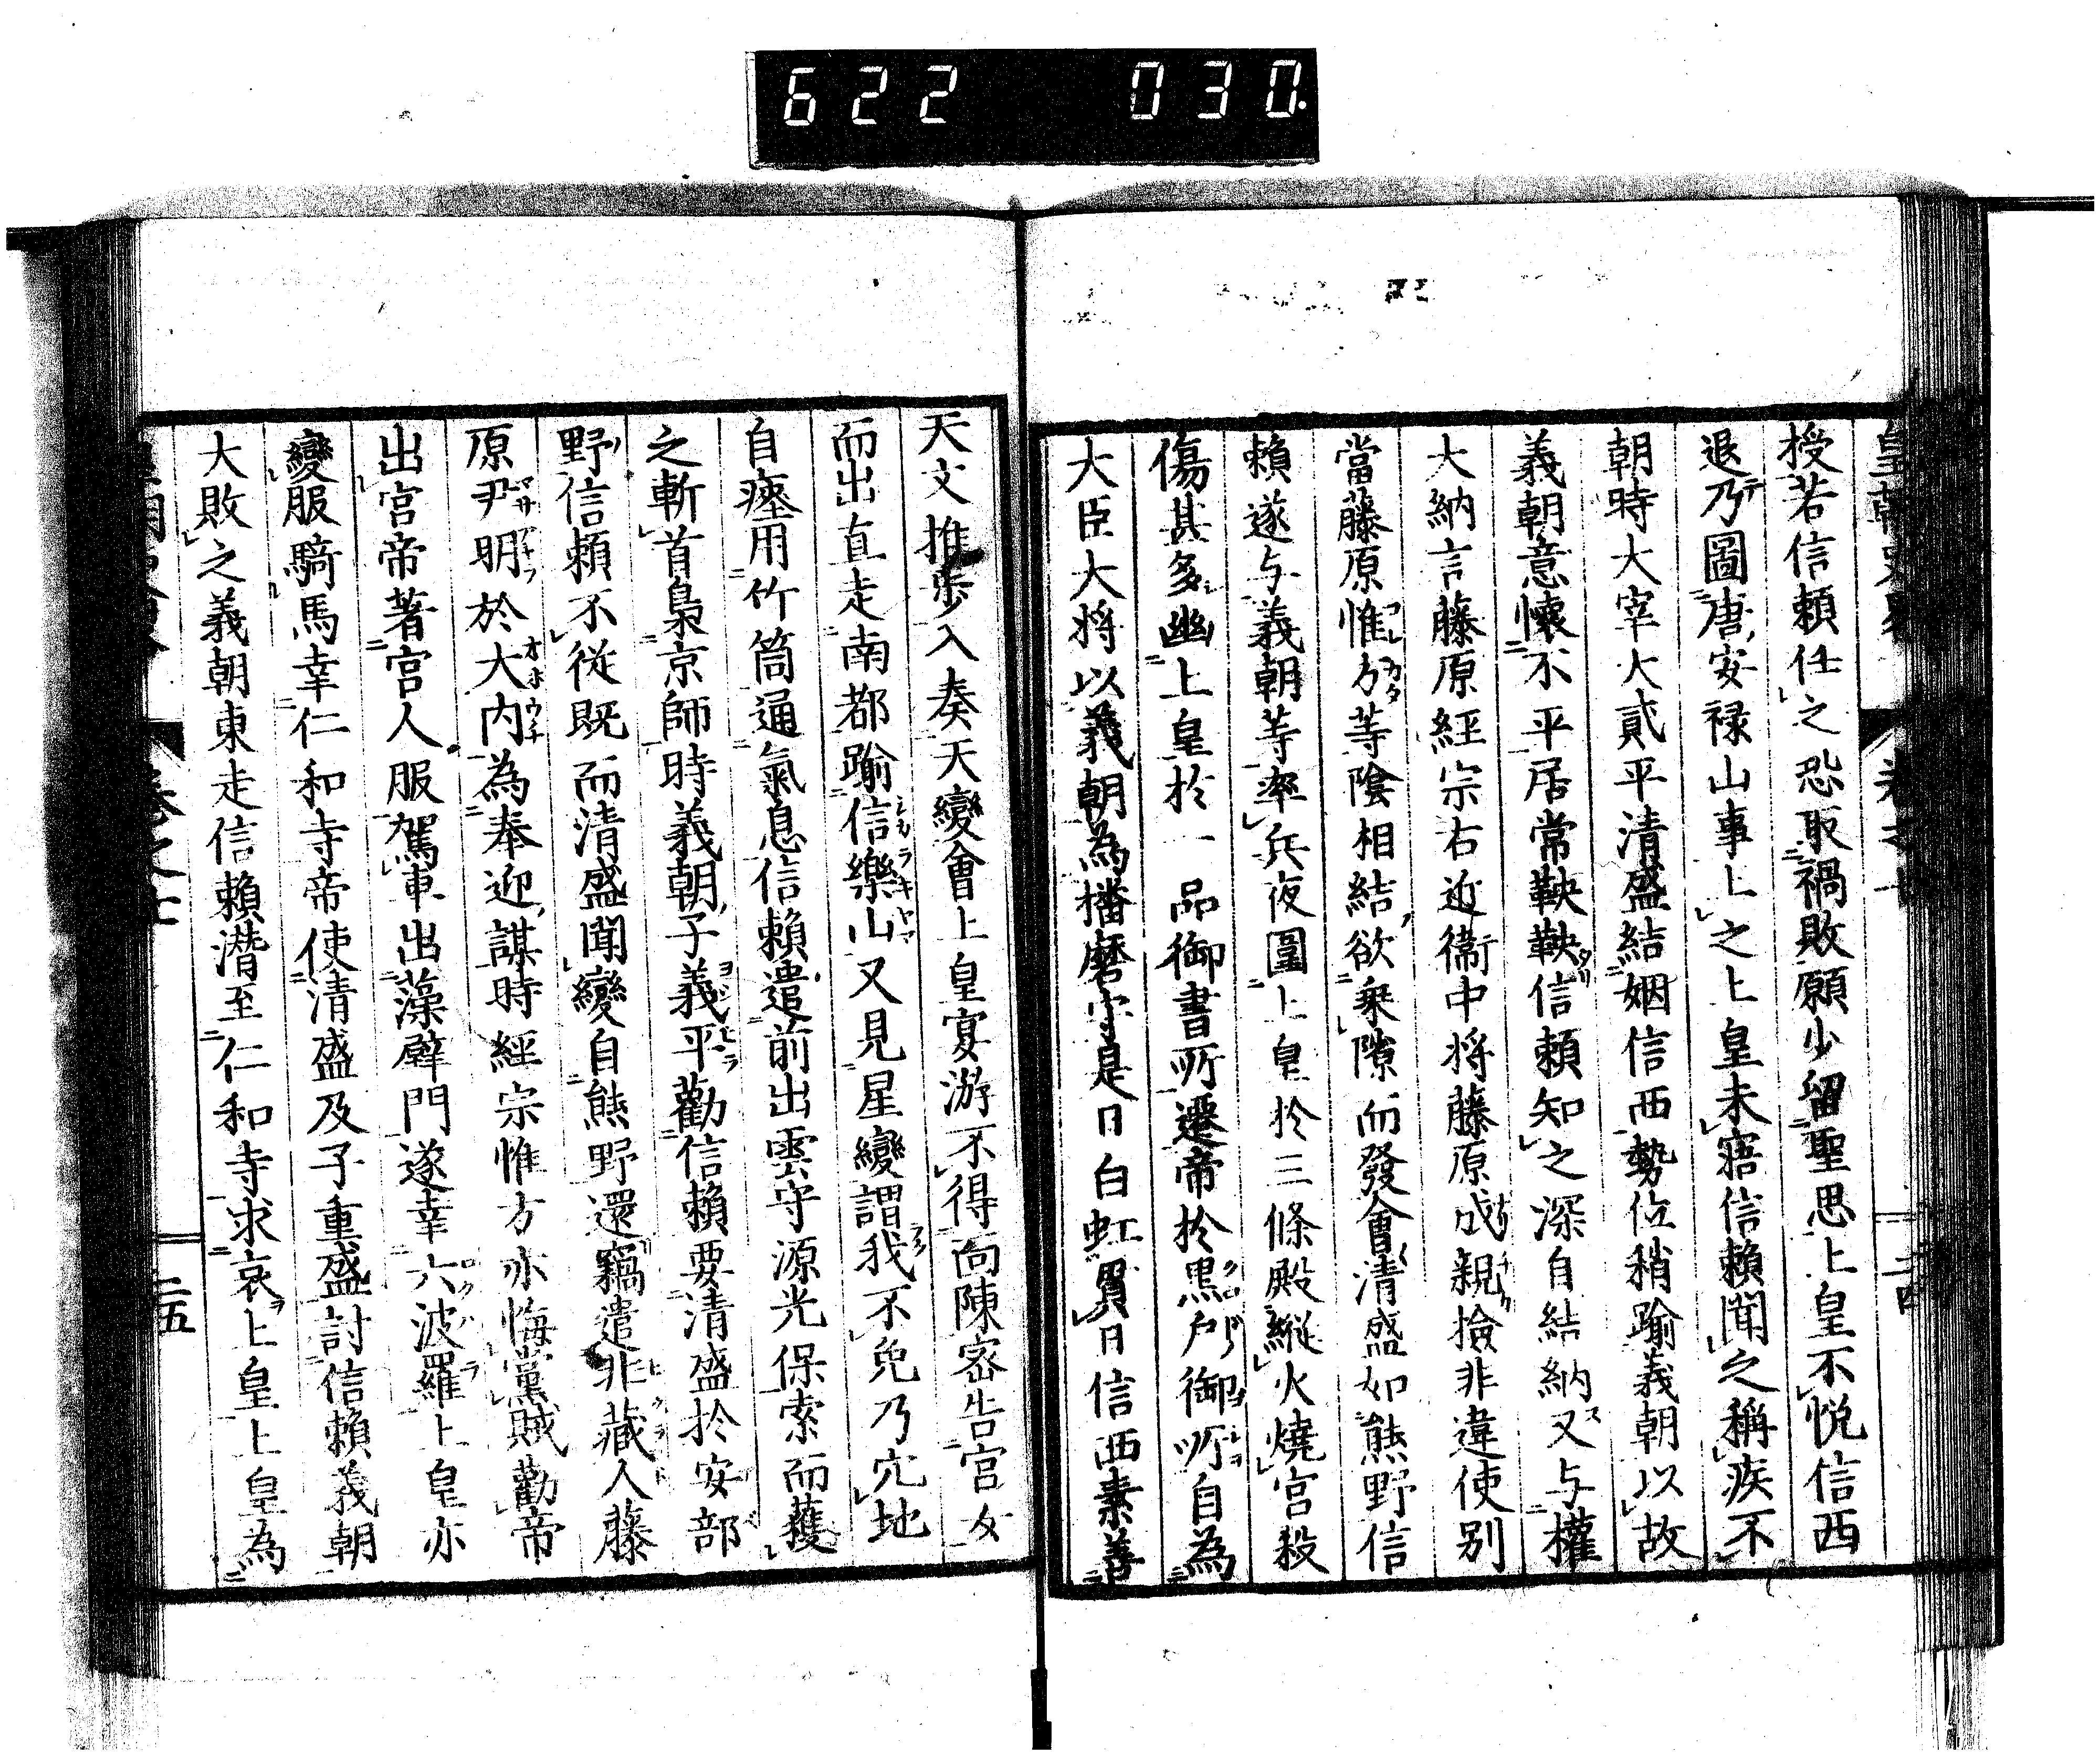 622 030
授若信頼任之恐取禍敗願少留聖思上皇不悦信西
退乃圖唐安禄山事上之上皇未寤信頼聞之稱疾不
朝時大宰大貳平清盛結姻信西勢位稍踰義朝以故
義朝意懐不平居常鞅鞅信頼知之深自結納又与權
大納言藤原経宗右近衞中将藤原成親撿非違使別
當藤原惟方等陰相結欲乗隙而發會清盛如熊野信
頼遂与義朝等率兵夜圍上皇於三條殿縦火燒宮殺
傷甚多幽上皇於一品御書所遷帝於黒戸御所自為
大臣大将以義朝為播磨守是日白虹貫日信西素善
天文推歩入奏天變會上皇宴游不得面陳密告宮女
而出直走南都踰信樂山又見星變謂我不免乃穴地
自瘞用竹筒通氣息信頼遣前出雲守源光保索而獲
之斬首梟京師時義朝子義平勸信頼要清盛於安部
野信頼不従既而清盛聞變自熊野還竊遣非藏人藤
原尹明於大内為奉迎謀時経宗惟方亦悔黨賊勸帝
出宮帝著宮人服駕車出藻壁門遂幸六波羅上皇亦
變服騎馬幸仁和寺帝使清盛及子重盛討信頼義朝
大敗之義朝東走信頼潜至仁和寺求哀上皇上皇為
二五